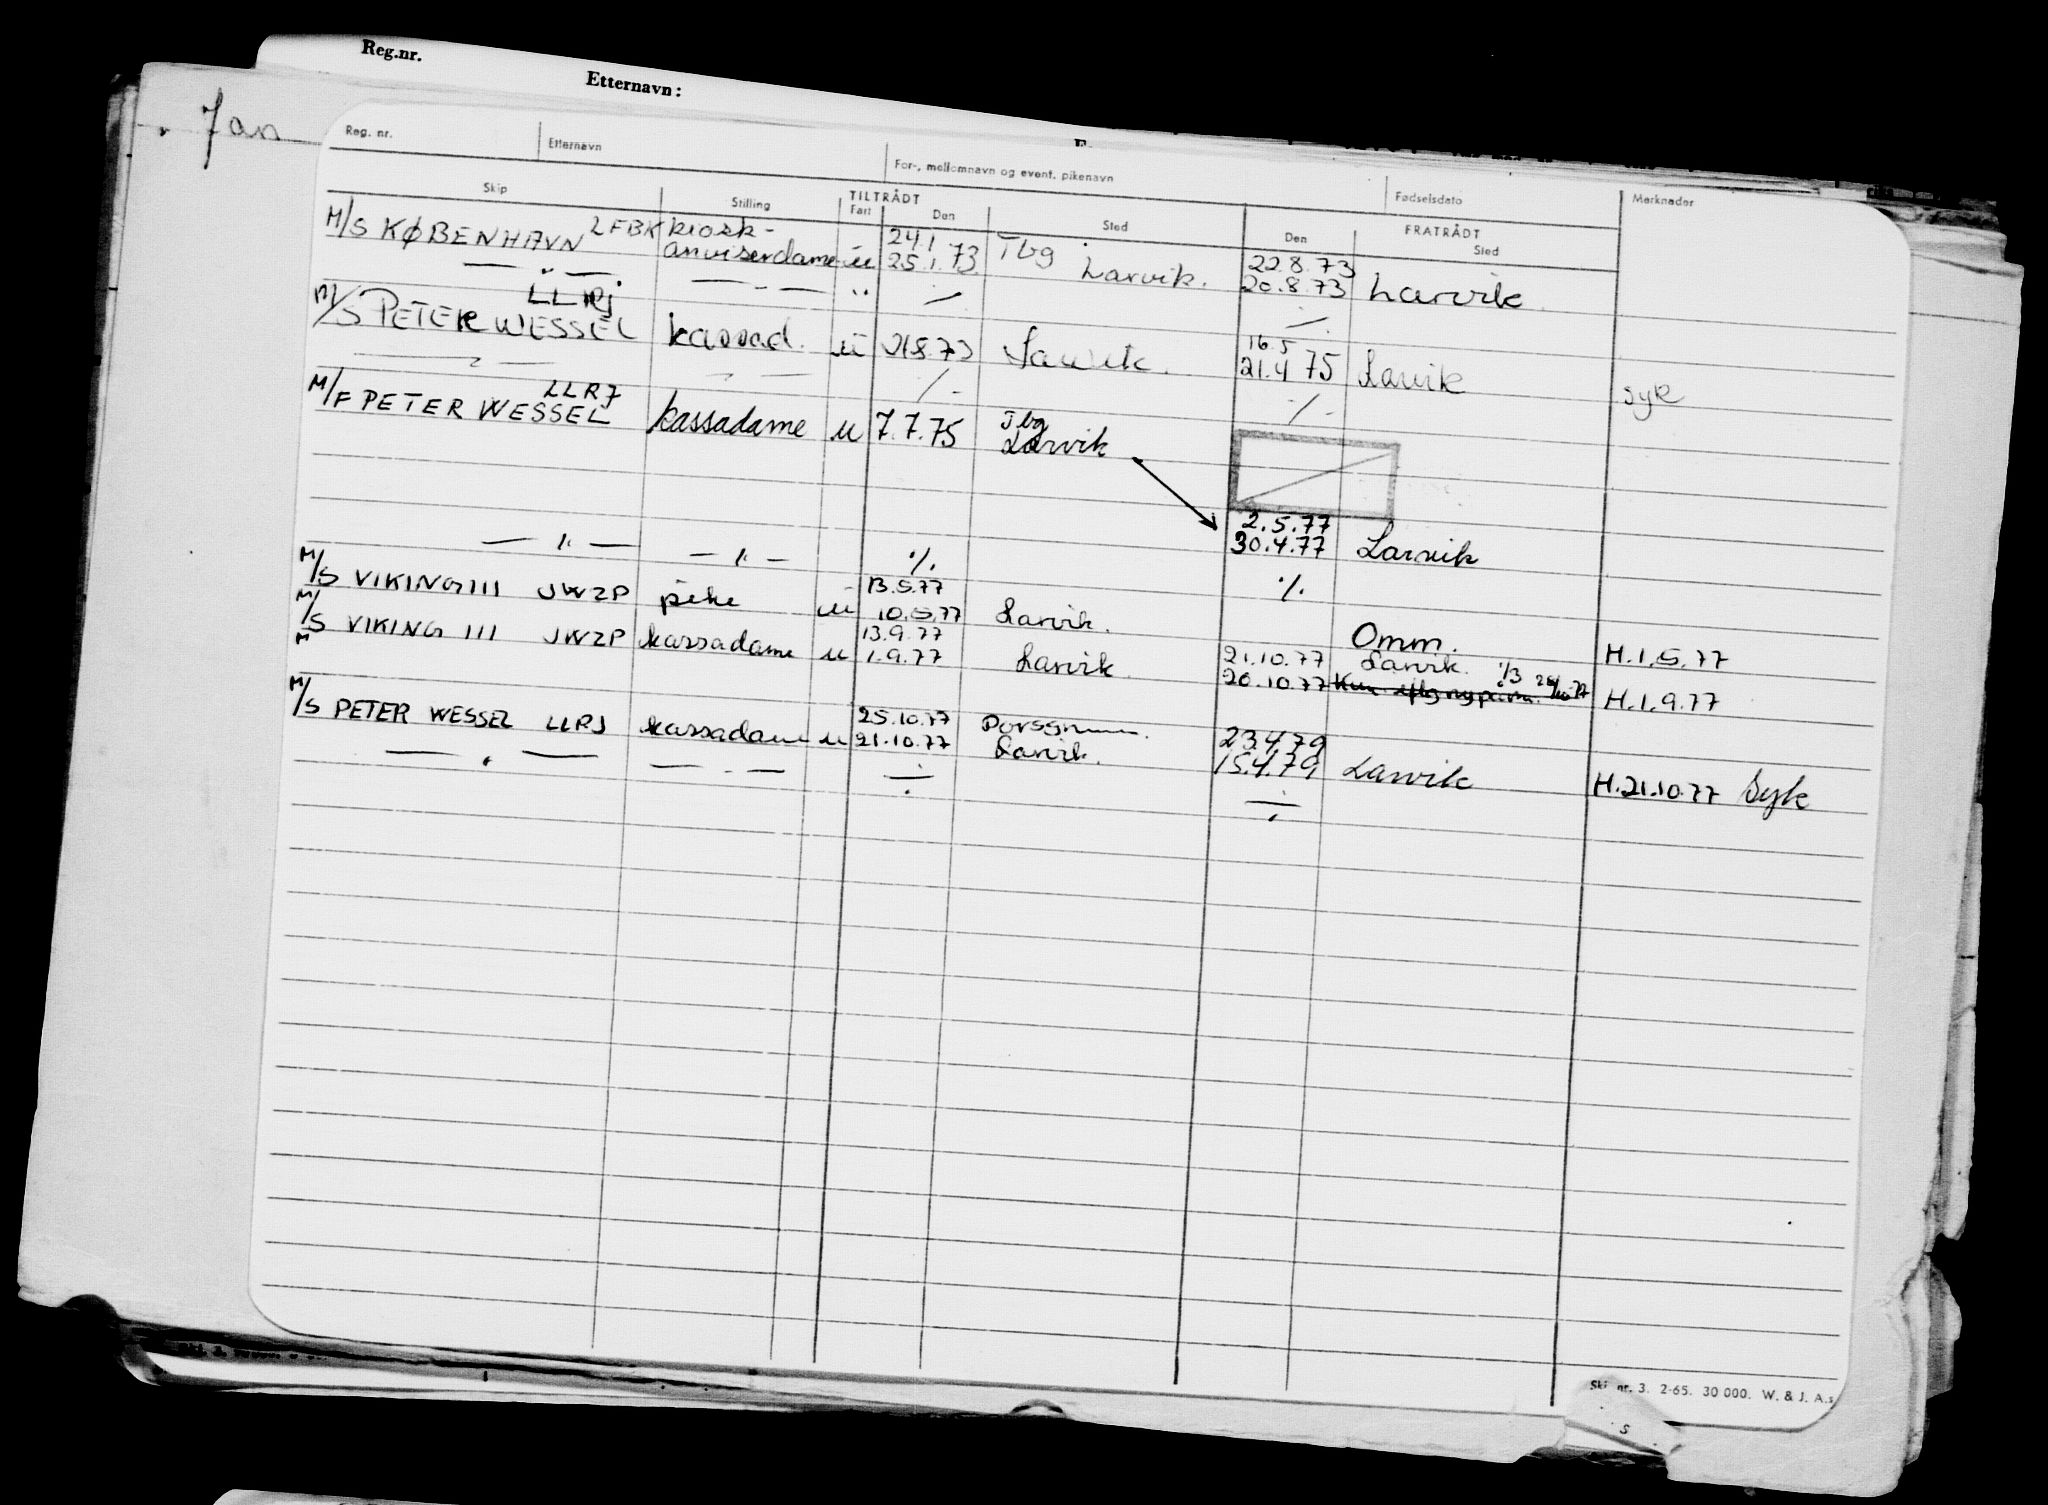 Reg.nr.
Etternavn:
Jan
Reg. nr. Etternavn For-, mellomnavn og event. pikenavn Fødselsdato Merknader
Skip Stilling TILTRÅDT FRATRÅDT
Fart Den Sted Den Sted
M/S KØBENHAVN LFBK kiosk- 24.1 Tbg 22.8.73
anviserdame u 25.1.73 Larvik. 20.8.73 Larvik
— " — — " — " ./. ./.
LLRJ 16.5
M/S PETER WESSEL kassad. u 21.8.73 Larvik. 21.4.75 Larvik syk
— " — — " — ./. ./.
LLRJ Tbg
M/F PETER WESSEL kassadame u 7.7.75 Larvik
2.5.77
30.4.77 Larvik
— " — — " — ./. ./.
13.5.77
M/S VIKING III JWZP pike u 10.5.77 Larvik. Omm. H.1.5.77
13.9.77 21.10.77 Larvik.
M/S VIKING III JWZP kassadame u 1.9.77 Larvik. 20.10.77 H.1.9.77
M
25.10.77 23.4.79
M/S PETER WESSEL LLRJ kassadame u 21.10.77 Larvik. 15.4.79 Larvik H.21.10.77 Syk
— " — — " — ÷ ÷
Skj. nr. 3. 2-65. 30 000. W. & J. A.s